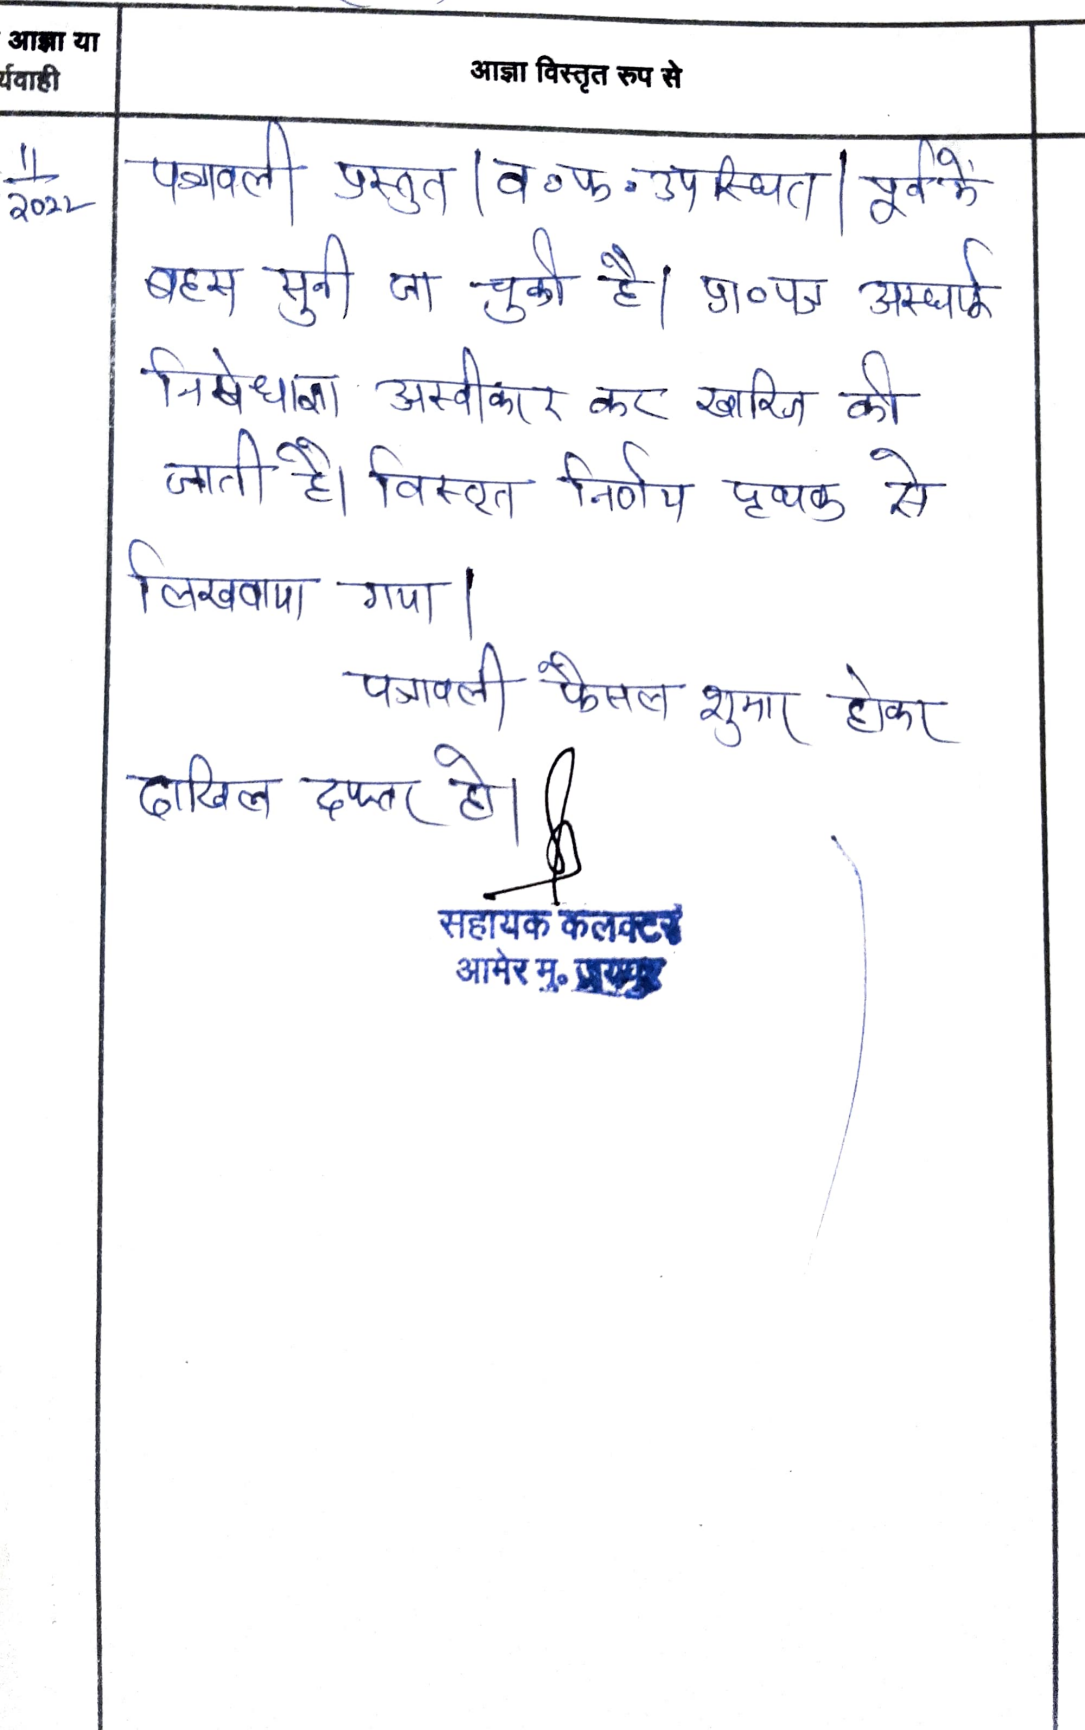 आज्ञा या
र्यवाही
आज्ञा विस्तृत रुप से
11
2022
पत्रावली प्रस्तुत। व०फ० उपस्थित। पूर्व में
बहस सुनी जा चुकी है। प्रा०पत्र अस्थाई
निषेधाज्ञा अस्वीकार कर खारिज की
जाती है। विस्तृत निर्णय पृथक से
लिखवाया गया।
पत्रावली फैसल शुमार होकर
दाखिल दफ्तर हो।
सहायक कलक्टर
आमेर मु. जयपुर